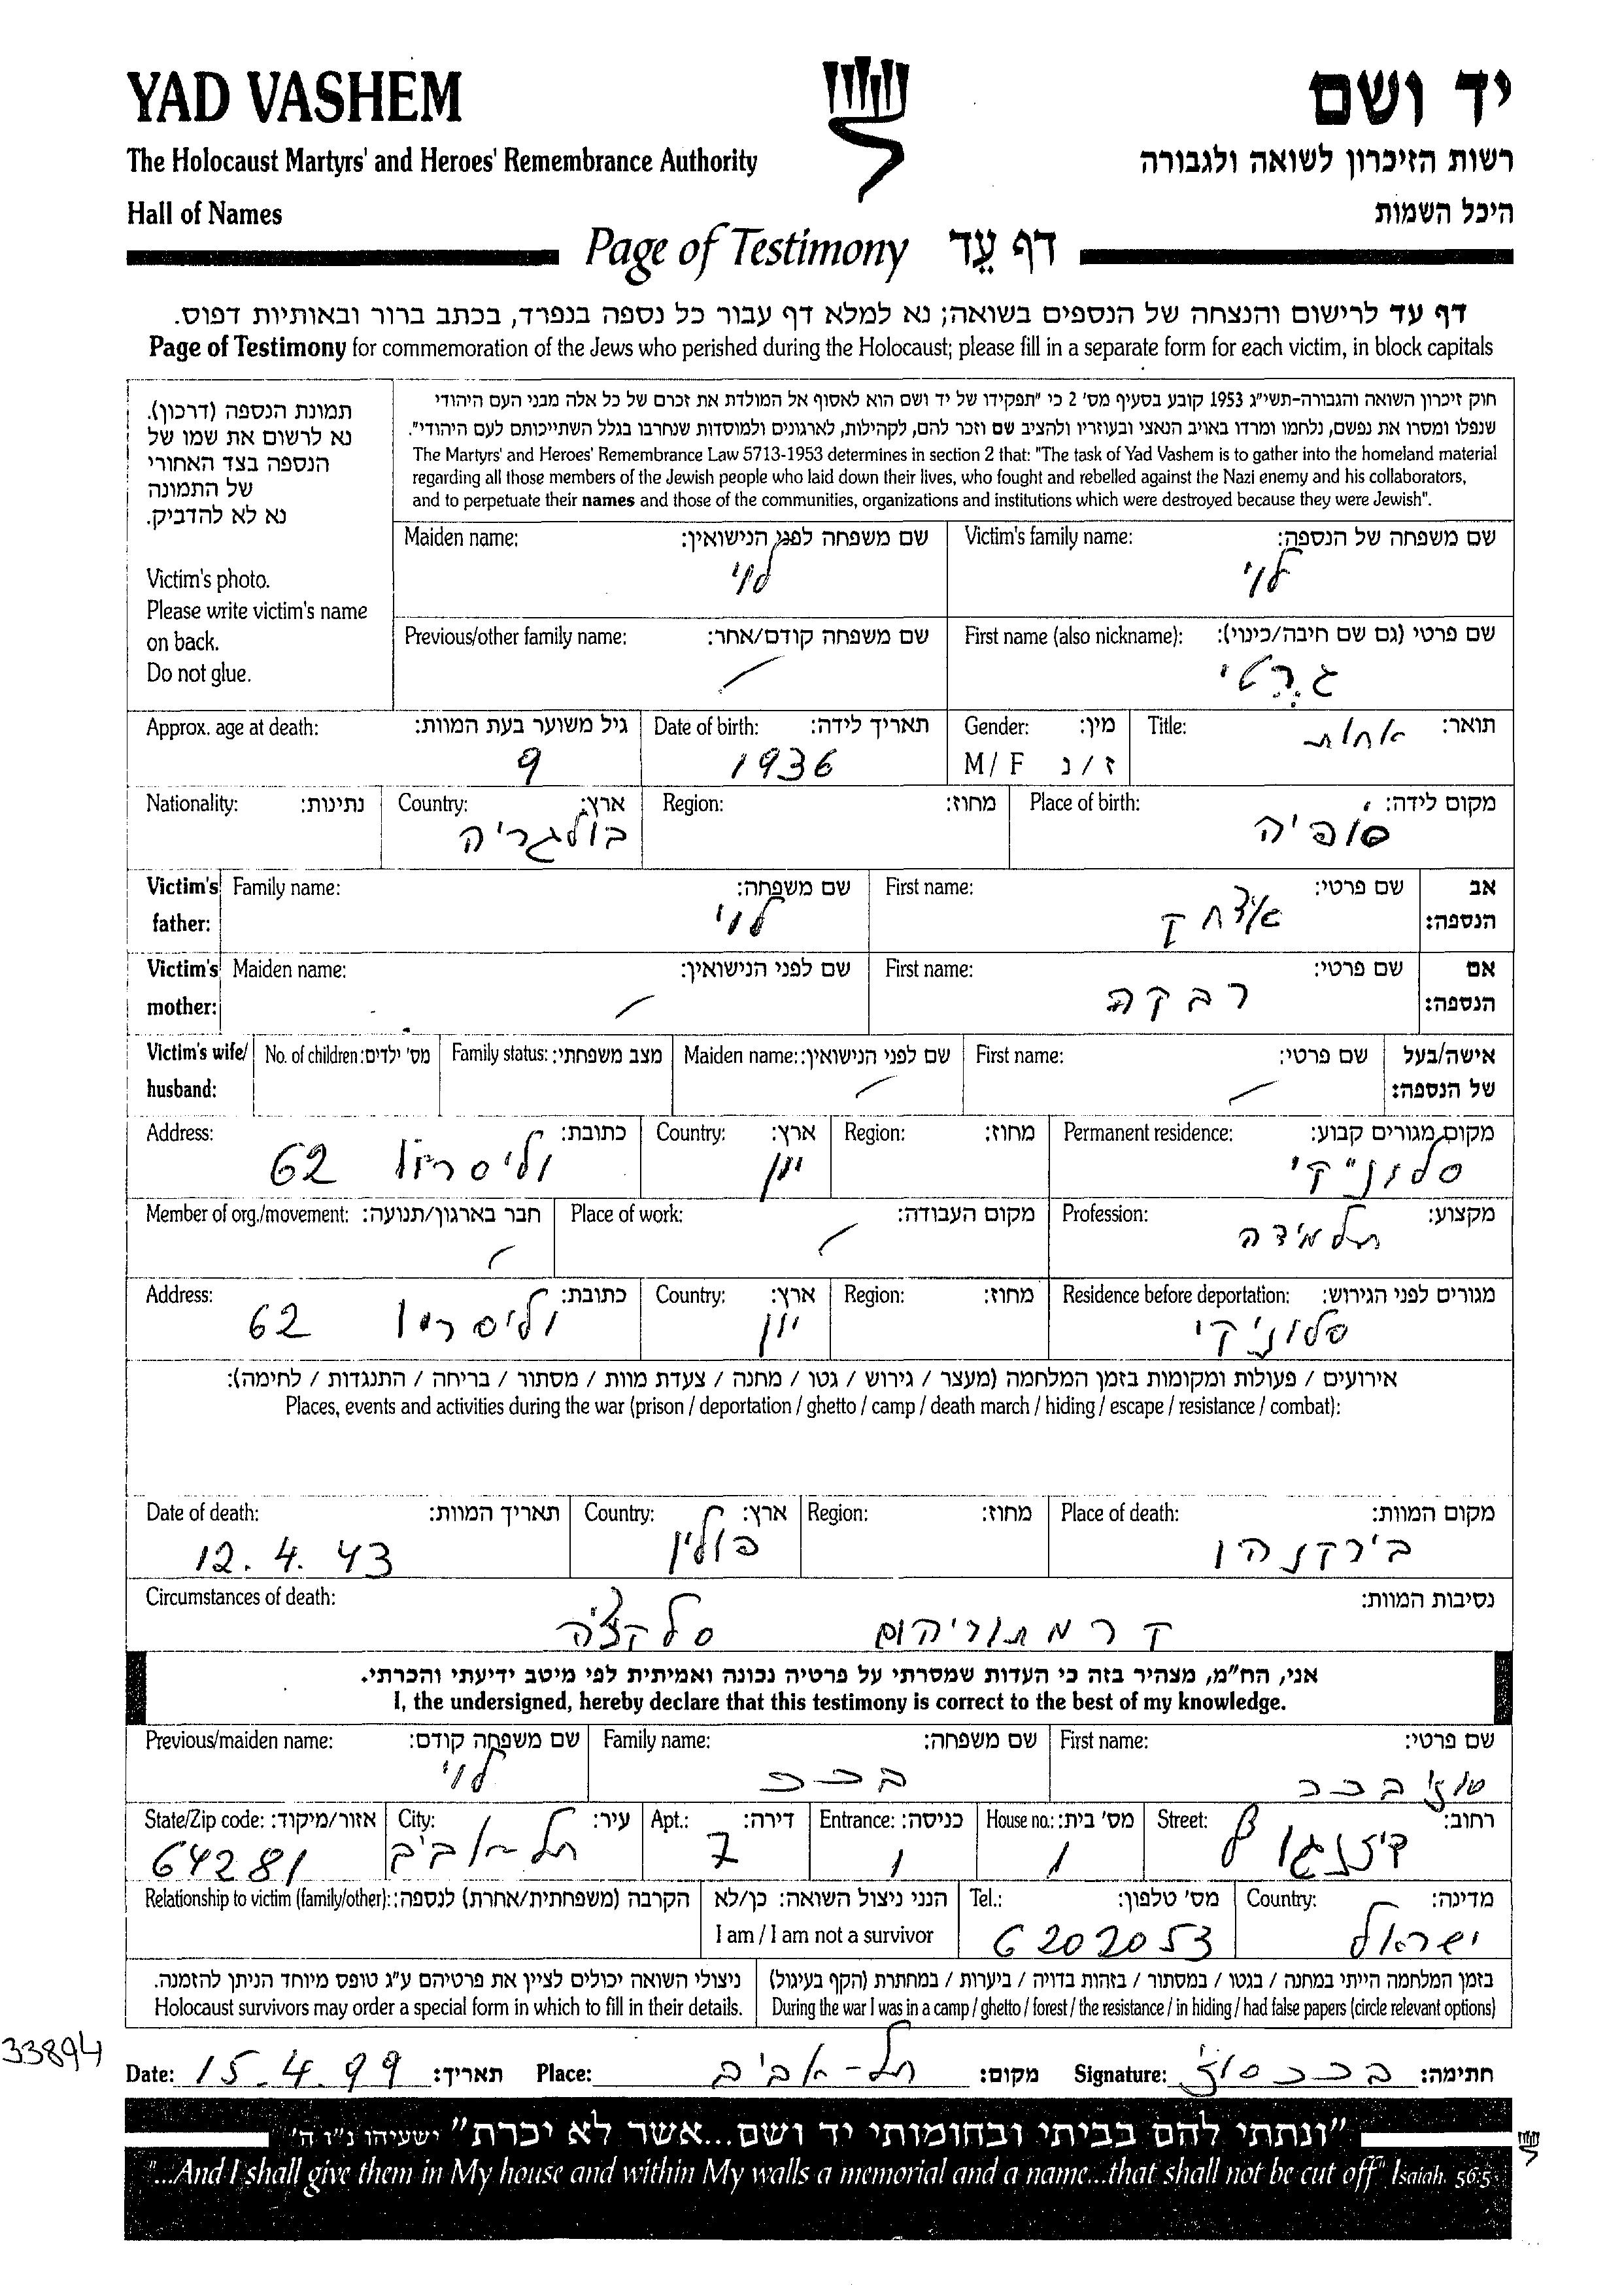 YAD VASHEM
יד ושם
The Holocaust Martyrs' and Heroes' Remembrance Authority
רשות הזיכרון לשואה ולגבורה
Hall of Names
היכל השמות
Page of Testimony דף עֵד
דף עד לרישום והנצחה של הנספים בשואה; נא למלא דף עבור כל נספה בנפרד, בכתב ברור ובאותיות דפוס.
Page of Testimony for commemoration of the Jews who perished during the Holocaust; please fill in a separate form for each victim, in block capitals
תמונת הנספה (דרכון).
נא לרשום את שמו של
הנספה בצד האחורי
של התמונה
נא לא להדביק.
Victim's photo.
Please write victim's name
on back.
Do not glue.
חוק זיכרון השואה והגבורה-תשי״ג 1953 קובע בסעיף מס' 2 כי "תפקידו של יד ושם הוא לאסוף אל המולדת את זכרם של כל אלה מבני העם היהודי
שנפלו ומסרו את נפשם, נלחמו ומרדו באויב הנאצי ובעוזריו ולהציב שם וזכר להם, לקהילות, לארגונים ולמוסדות שנחרבו בגלל השתייכותם לעם היהודי".
The Martyrs' and Heroes' Remembrance Law 5713-1953 determines in section 2 that: "The task of Yad Vashem is to gather into the homeland material
regarding all those members of the Jewish people who laid down their lives, who fought and rebelled against the Nazi enemy and his collaborators,
and to perpetuate their names and those of the communities, organizations and institutions which were destroyed because they were Jewish".
Maiden name: שם משפחה לפני הנישואין: Victim's family name: שם משפחה של הנספה:
לוי לוי
Previous/other family name: שם משפחה קודם/אחר: First name (also nickname): שם פרטי (גם שם חיבה/כינוי):
ג'רטי
Approx. age at death: גיל משוער בעת המוות: Date of birth: תאריך לידה: Gender: מין: Title: תואר:
9 1936 M / F ז / נ אחות
Nationality: נתינות: Country: ארץ: Region: מחוז: Place of birth: מקום לידה:
בולגריה סופיה
Victim's Family name: שם משפחה: First name: שם פרטי: אב
father: לוי יצחק הנספה:
Victim's Maiden name: שם לפני הנישואין: First name: שם פרטי: אם
mother: רבקה הנספה:
Victim's wife/ No. of children: מס' ילדים: Family status: מצב משפחתי: Maiden name: שם לפני הנישואין: First name: שם פרטי: אישה/בעל
husband: של הנספה:
Address: כתובת: Country: ארץ: Region: מחוז: Permanent residence: מקום מגורים קבוע:
62 יוון סלוניקי
Member of org./movement: חבר בארגון/תנועה: Place of work: מקום העבודה: Profession: מקצוע:
תלמידה
Address: כתובת: Country: ארץ: Region: מחוז: Residence before deportation: מגורים לפני הגירוש:
62 יוון סלוניקי
אירועים / פעולות ומקומות בזמן המלחמה (מעצר / גירוש / גטו / מחנה / צעדת מוות / מסתור / בריחה / התנגדות / לחימה):
Places, events and activities during the war (prison / deportation / ghetto / camp / death march / hiding / escape / resistance / combat):
Date of death: תאריך המוות: Country: ארץ: Region: מחוז: Place of death: מקום המוות:
12.4.43 פולין בירקנהו
Circumstances of death: נסיבות המוות:
קרמתוריהום סלקציה
אני, הח"מ, מצהיר בזה כי העדות שמסרתי על פרטיה נכונה ואמיתית לפי מיטב ידיעתי והכרתי.
I, the undersigned, hereby declare that this testimony is correct to the best of my knowledge.
Previous/maiden name: שם משפחה קודם: Family name: שם משפחה: First name: שם פרטי:
לוי בככ
State/Zip code: אזור/מיקוד: City: עיר: Apt.: דירה: Entrance: כניסה: House no.: מס' בית: Street: רחוב:
64281 תל-אביב 7 1 1 דיזנגוף
Relationship to victim (family/other): הקרבה (משפחתית/אחרת) לנספה: הנני ניצול השואה: כן/לא Tel.: מס' טלפון: Country: מדינה:
I am / I am not a survivor 6202053 ישראל
ניצולי השואה יכולים לציין את פרטיהם ע״ג טופס מיוחד הניתן להזמנה. בזמן המלחמה הייתי במחנה / בגטו / במסתור / בזהות בדויה / ביערות / במחתרת (הקף בעיגול)
Holocaust survivors may order a special form in which to fill in their details. During the war I was in a camp / ghetto / forest / the resistance / in hiding / had false papers (circle relevant options)
33894
Date: 15.4.99 תאריך: Place: תל-אביב מקום: Signature: חתימה:
"ונתתי להם בביתי ובחומותי יד ושם...אשר לא יכרת" ישעיהו נ"ו ה'
"...And I shall give them in My house and within My walls a memorial and a name...that shall not be cut off" Isaiah, 56:5